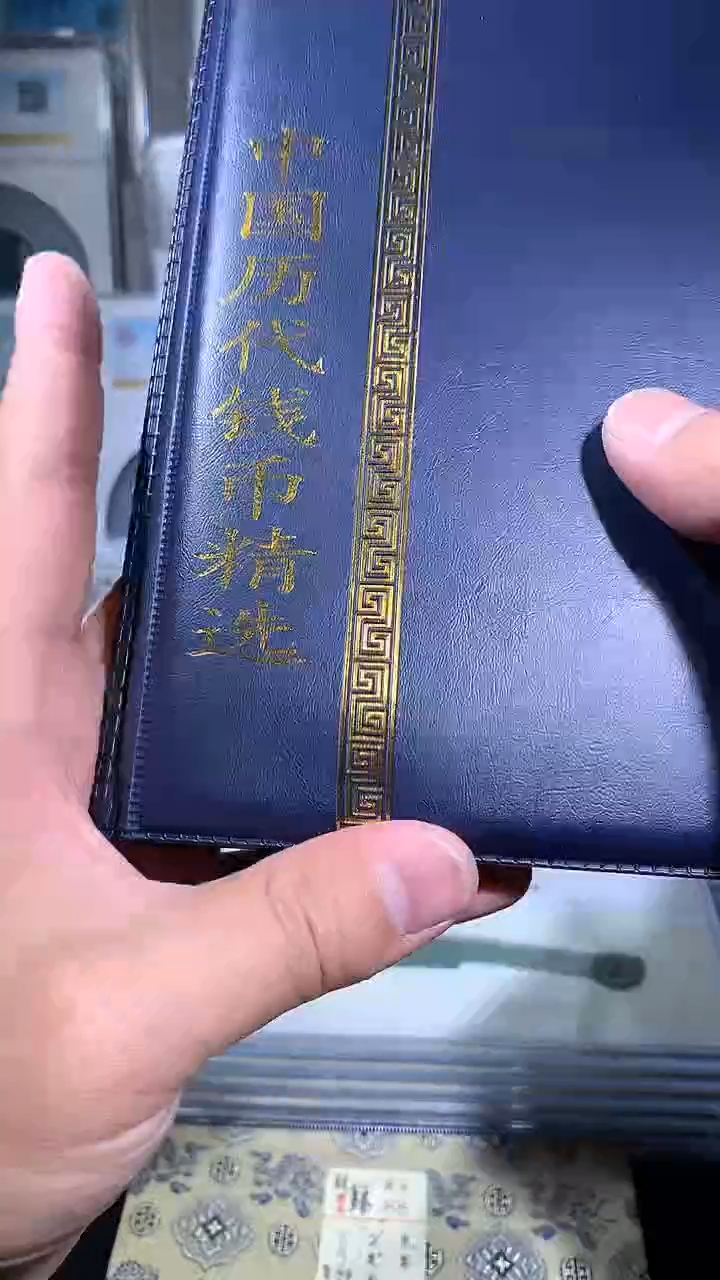 中国历代钱币精选